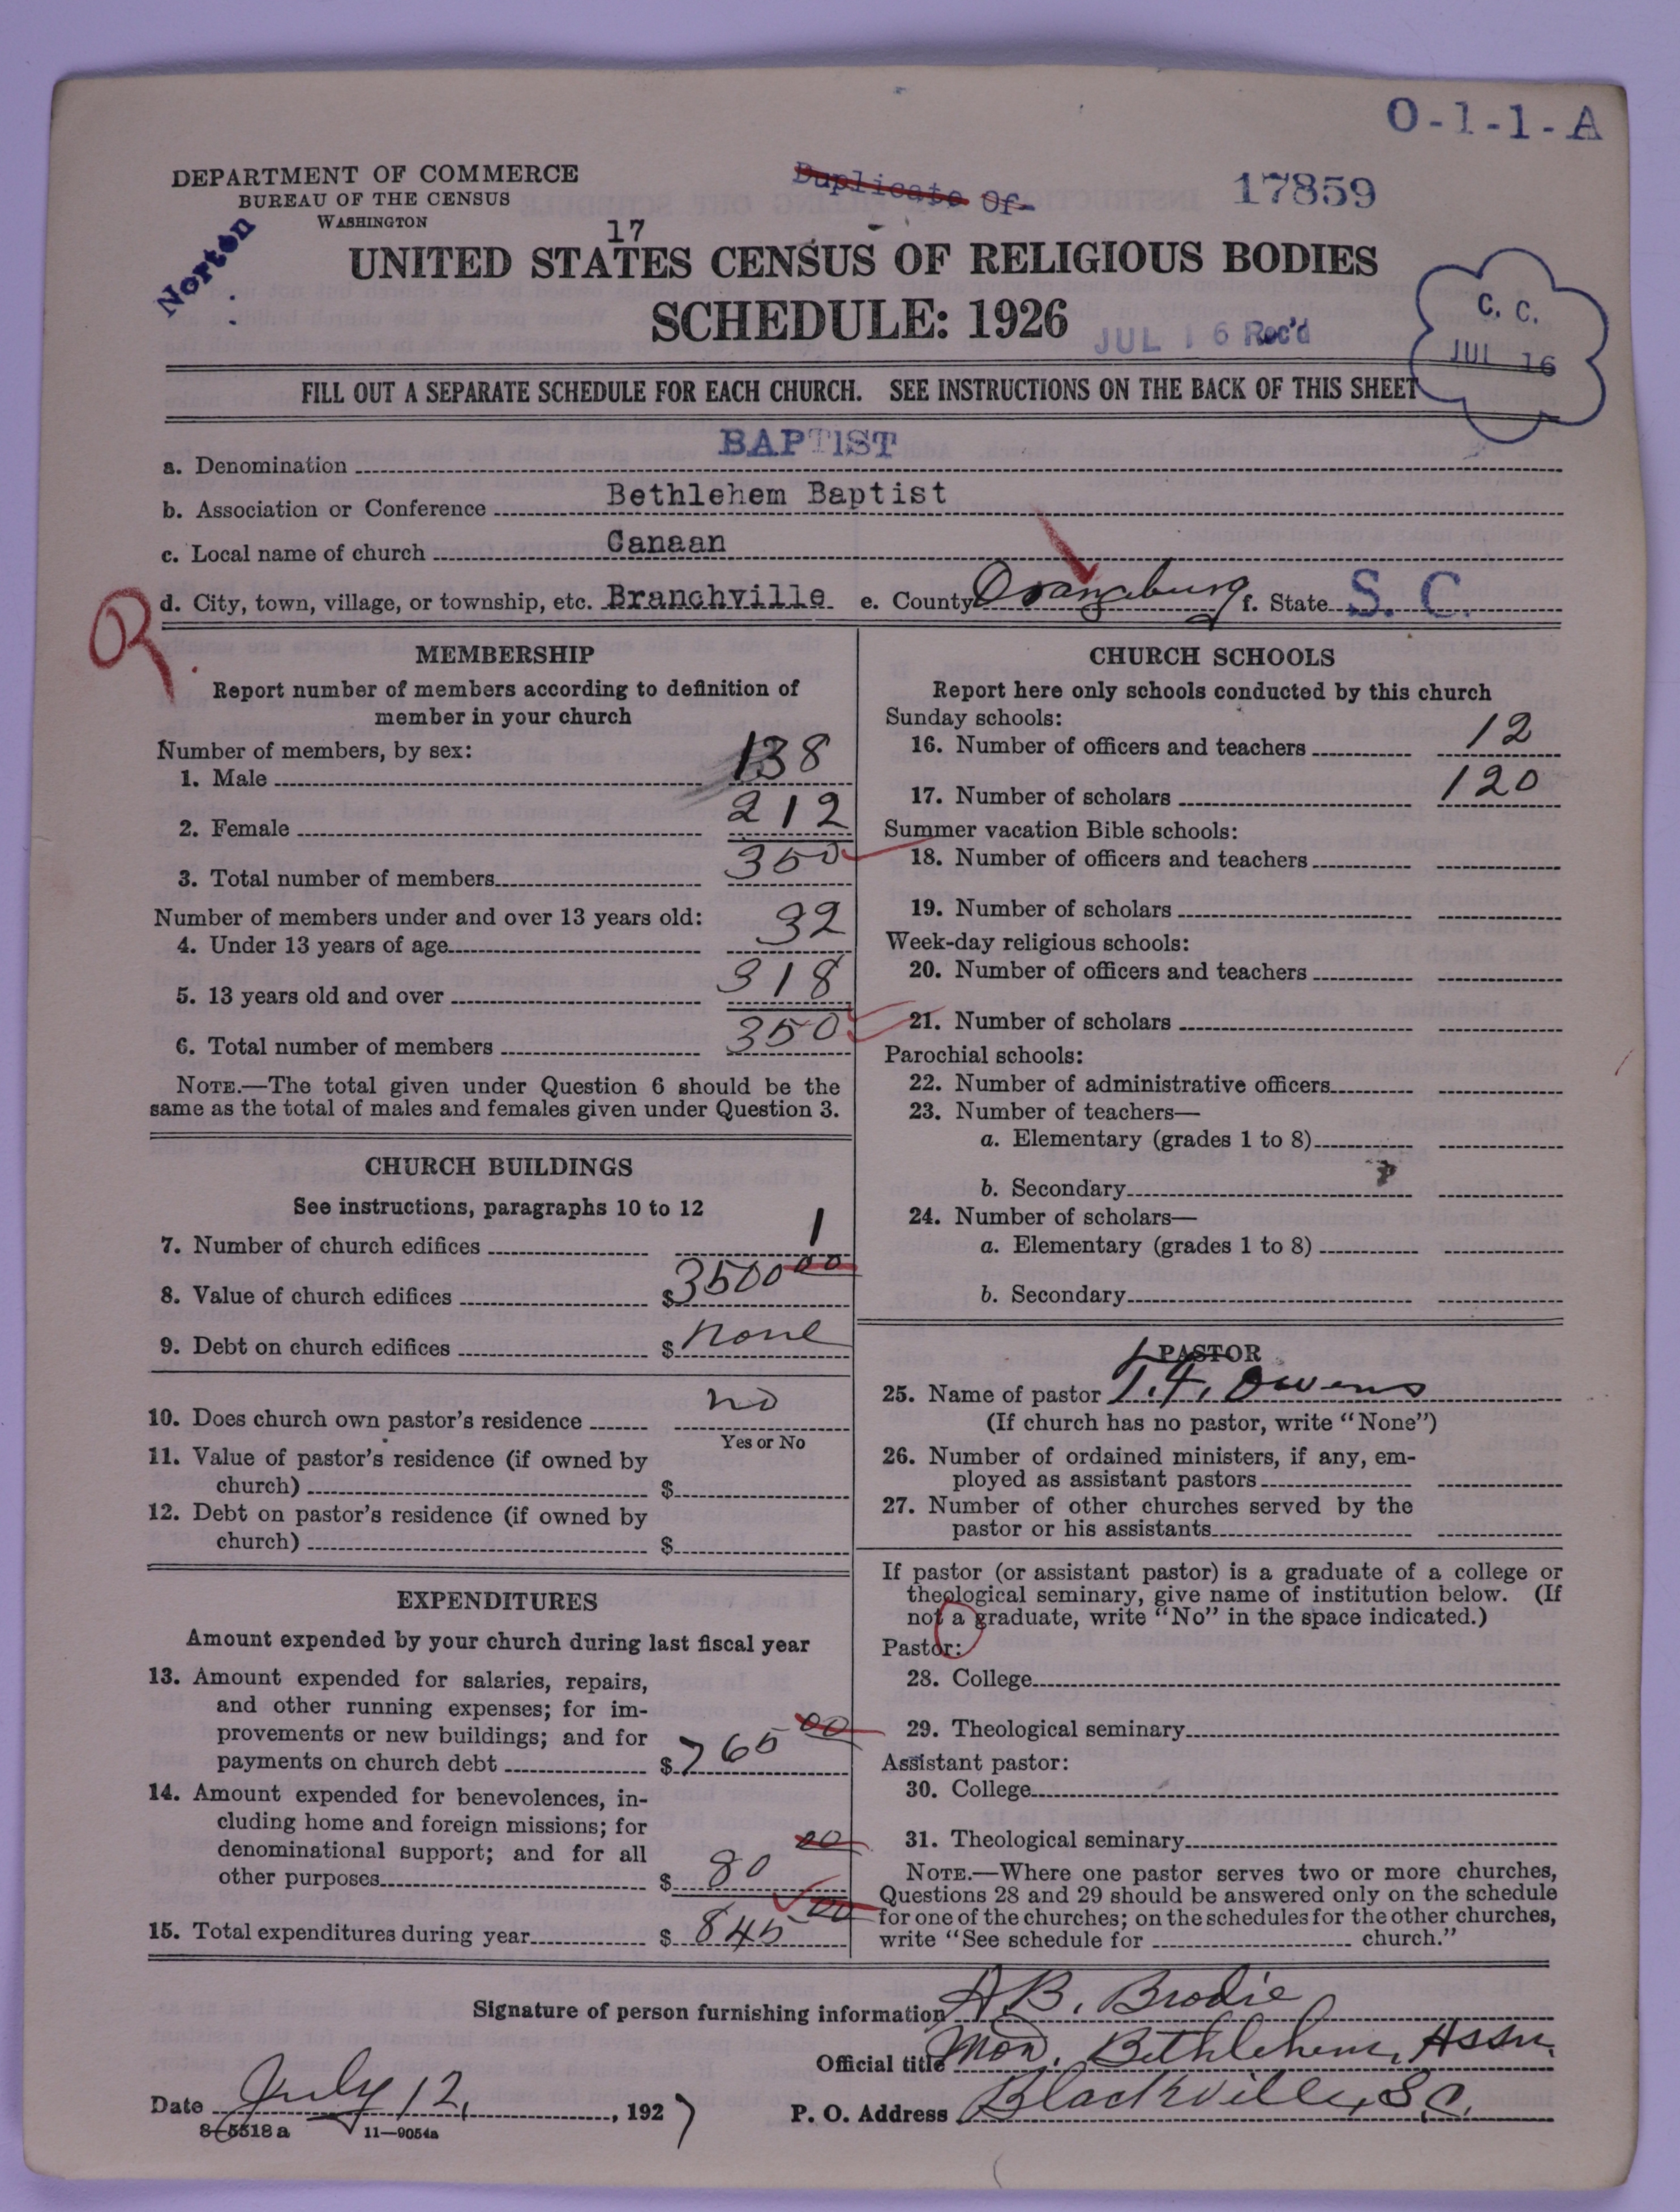 O-1-1-A
DEPARTMENT OF COMMERCE
BUREAU OF THE CENSUS
WASHINGTON
Duplicate Of-
17859
Norton
17
UNITED STATES CENSUS OF RELIGIOUS BODIES
SCHEDULE: 1926
JUL 16 Rec'd
C. C.
JUL 16
FILL OUT A SEPARATE SCHEDULE FOR EACH CHURCH. SEE INSTRUCTIONS ON THE BACK OF THIS SHEET
a. Denomination BAPTIST
b. Association or Conference Bethlehem Baptist
c. Local name of church Canaan
d. City, town, village, or township, etc. Branchville e. County Orangeburg f. State S. C.
MEMBERSHIP
Report number of members according to definition of
member in your church
Number of members, by sex:
1. Male 138
2. Female 212
3. Total number of members 350
Number of members under and over 13 years old:
4. Under 13 years of age 32
5. 13 years old and over 318
6. Total number of members 350
NOTE.—The total given under Question 6 should be the
same as the total of males and females given under Question 3.
CHURCH BUILDINGS
See instructions, paragraphs 10 to 12
7. Number of church edifices 1
8. Value of church edifices $3500 00
9. Debt on church edifices $ none
10. Does church own pastor's residence no
Yes or No
11. Value of pastor's residence (if owned by
church) $
12. Debt on pastor's residence (if owned by
church) $
EXPENDITURES
Amount expended by your church during last fiscal year
13. Amount expended for salaries, repairs,
and other running expenses; for im-
provements or new buildings; and for
payments on church debt $ 765 00
14. Amount expended for benevolences, in-
cluding home and foreign missions; for
denominational support; and for all
other purposes $ 80 00
15. Total expenditures during year $ 845 00
CHURCH SCHOOLS
Report here only schools conducted by this church
Sunday schools:
16. Number of officers and teachers 12
17. Number of scholars 120
Summer vacation Bible schools:
18. Number of officers and teachers
19. Number of scholars
Week-day religious schools:
20. Number of officers and teachers
21. Number of scholars
Parochial schools:
22. Number of administrative officers
23. Number of teachers—
a. Elementary (grades 1 to 8)
b. Secondary
24. Number of scholars—
a. Elementary (grades 1 to 8)
b. Secondary
PASTOR
25. Name of pastor T. F. Owens
(If church has no pastor, write "None")
26. Number of ordained ministers, if any, em-
ployed as assistant pastors
27. Number of other churches served by the
pastor or his assistants
If pastor (or assistant pastor) is a graduate of a college or
theological seminary, give name of institution below. (If
not a graduate, write "No" in the space indicated.)
Pastor:
28. College
29. Theological seminary
Assistant pastor:
30. College
31. Theological seminary
NOTE.—Where one pastor serves two or more churches,
Questions 28 and 29 should be answered only on the schedule
for one of the churches; on the schedules for the other churches,
write "See schedule for church."
Signature of person furnishing information A. B. Brodie
Official title Mod. Bethlehem Assn.
Date July 12, 1927 P. O. Address Blackville, S. C.
8-5518 a 11—9054a